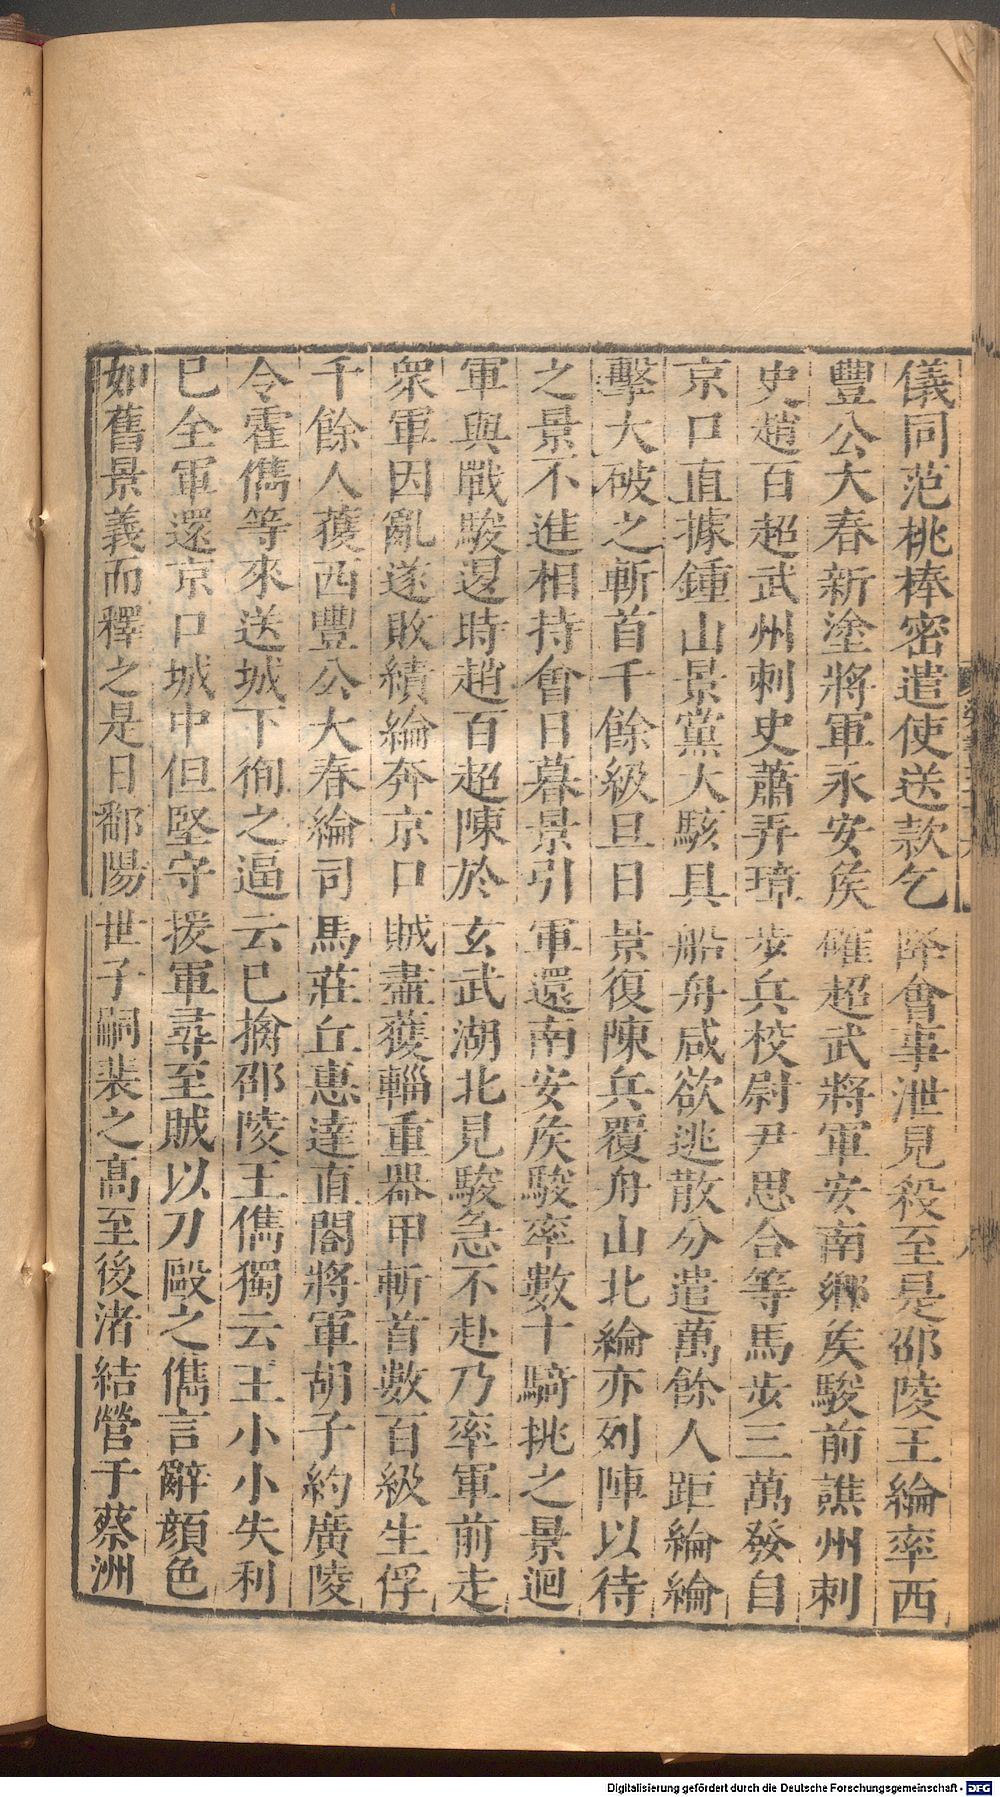 儀同范桃棒密遣使送款乞降會事泄見殺至是邵陵王綸率西
豐公大春新塗將軍永安侯確超武將軍安南鄉侯駿前譙州刺
史趙百超武州刺史蕭弄璋步兵校尉尹思合等馬步三萬發自
京口直據鍾山景黨大駭具船舟咸欲逃散分遣萬餘人距綸綸
擊大破之斬首千餘級旦日景復陳兵覆舟山北綸亦列陣以待
之景不進相持會日暮景引軍還南安侯駿率數十騎挑之景迴
軍與戰駿退時趙百超陳於玄武湖北見駿急不赴乃率軍前走
衆軍因亂遂敗績綸奔京口賊盡獲輜重器甲斬首數百級生俘
千餘人獲西豐公大春綸司馬莊丘惠達直閤將軍胡子約廣陵
令霍儁等來送城下徇之逼云已擒邵陵王儁獨云王小小失利
已全軍還京口城中但堅守援軍尋至賊以刀毆之儁言辭顔色
如舊景義而釋之是日鄱陽世子嗣裴之高至後渚結營于蔡洲
Digitalisierung gefördert durch die Deutsche Forschungsgemeinschaft - DFG